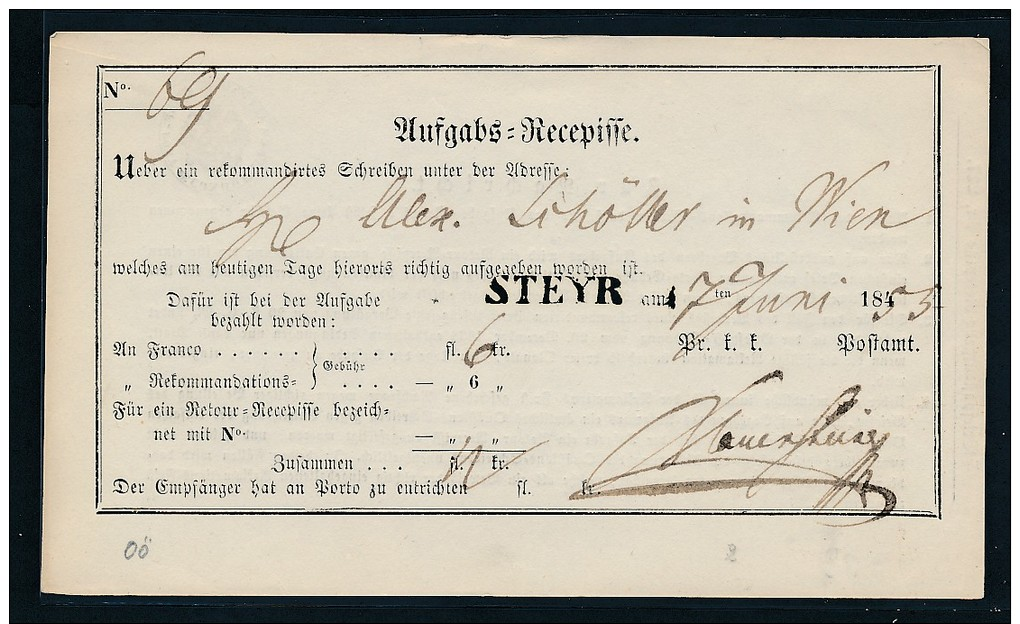 No. 69
Aufgabs-Recepisse.
Ueber ein rekommandirtes Schreiben unter der Adresse:
Alex. Schöller in Wien
welches am heutigen Tage hierorts richtig aufgegeben worden ist.
Dafür ist bei der Aufgabe bezahlt worden:
STEYR am 7ten Juni 1855
An Franco . . . . . . } Gebühr . . . . fl. 6 kr.
Pr. k. k. Postamt.
„ Rekommandations- } . . . . — „ 6 „
Für ein Retour-Recepisse bezeich-
net mit No. — „ „
Zusammen . . . fl. kr.
Der Empfänger hat an Porto zu entrichten fl. kr.
OÖ